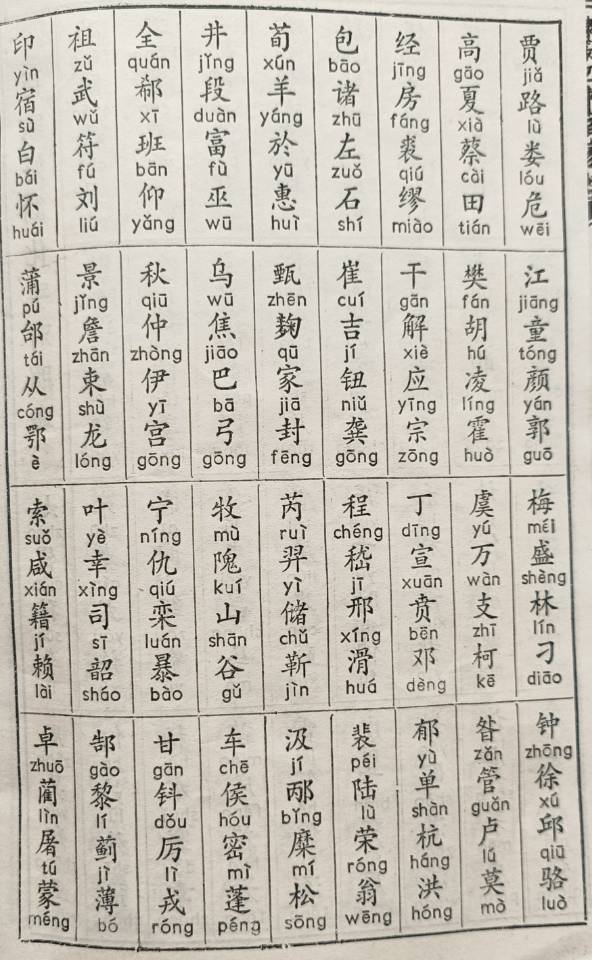 贾 jiǎ 路 lù 娄 lóu 危 wēi
江 jiāng 童 tóng 颜 yán 郭 guō
梅 méi 盛 shèng 林 lín 刁 diāo
钟 zhōng 徐 xú 邱 qiū 骆 luò
高 gāo 夏 xià 蔡 cài 田 tián
樊 fán 胡 hú 凌 líng 霍 huò
虞 yú 万 wàn 支 zhī 柯 kē
昝 zǎn 管 guǎn 卢 lú 莫 mò
经 jīng 房 fáng 裘 qiú 缪 miào
干 gān 解 xiè 应 yīng 宗 zōng
丁 dīng 宣 xuān 贲 bēn 邓 dèng
郁 yù 单 shàn 杭 háng 洪 hóng
包 bāo 诸 zhū 左 zuǒ 石 shí
崔 cuí 吉 jí 钮 niǔ 龚 gōng
程 chéng 嵇 jī 邢 xíng 滑 huá
裴 péi 陆 lù 荣 róng 翁 wēng
荀 xún 羊 yáng 於 yū 惠 huì
甄 zhēn 麹 qū 家 jiā 封 fēng
芮 ruì 羿 yì 储 chǔ 靳 jìn
汲 jí 邴 bǐng 糜 mí 松 sōng
井 jǐng 段 duàn 富 fù 巫 wū
乌 wū 焦 jiāo 巴 bā 弓 gōng
牧 mù 隗 kuí 山 shān 谷 gǔ
车 chē 侯 hóu 密 mì 蓬 péng
全 quán 郗 xī 班 bān 仰 yǎng
秋 qiū 仲 zhòng 伊 yī 宫 gōng
宁 níng 仇 qiú 栾 luán 暴 bào
甘 gān 钭 dǒu 厉 lì 戎 róng
祖 zǔ 武 wǔ 符 fú 刘 liú
景 jǐng 詹 zhān 束 shù 龙 lóng
叶 yè 幸 xìng 司 sī 韶 sháo
郜 gào 黎 lí 蓟 jì 薄 bó
印 yìn 宿 sù 白 bái 怀 huái
蒲 pú 邰 tái 从 cóng 鄂 è
索 suǒ 咸 xián 籍 jí 赖 lài
卓 zhuō 蔺 lìn 屠 tú 蒙 méng